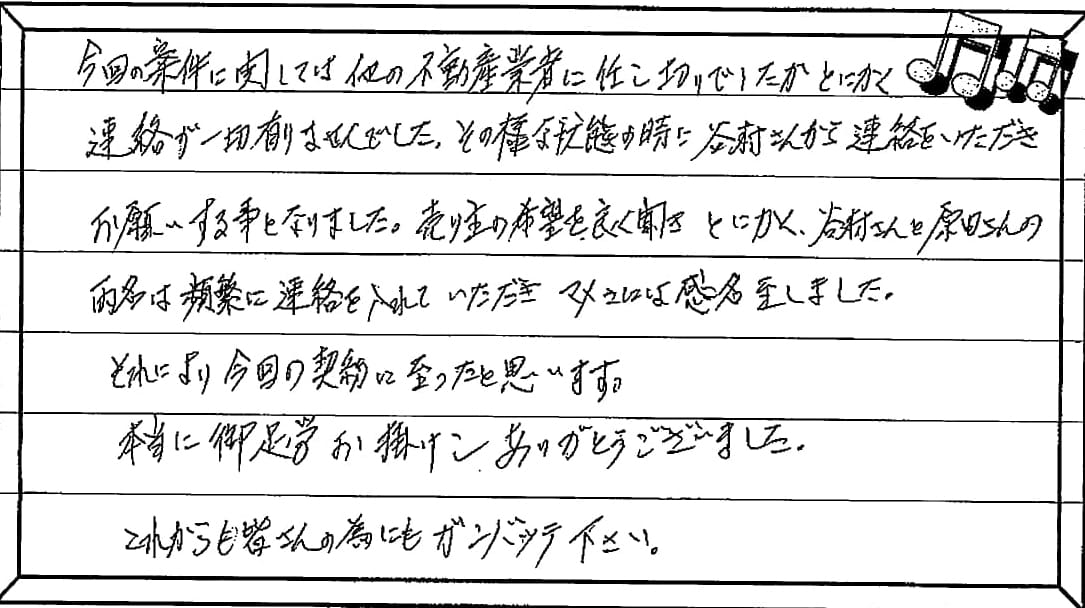 今回の案件に関しては他の不動産業者に任し切りでしたがとにかく
連絡が一切有りませんでした。その様な状態の時に谷村さんから連絡をいただき
お願いする事となりました。売り主の希望を良く聞き とにかく、谷村さんと原田さんの
両名は頻繁に連絡を入れていただき マメさには感名至しました。
それにより今回の契約に至ったと思います。
本当に御足労お掛けし ありがとうございました。
これからも皆さんの為にもガンバッテ下さい。